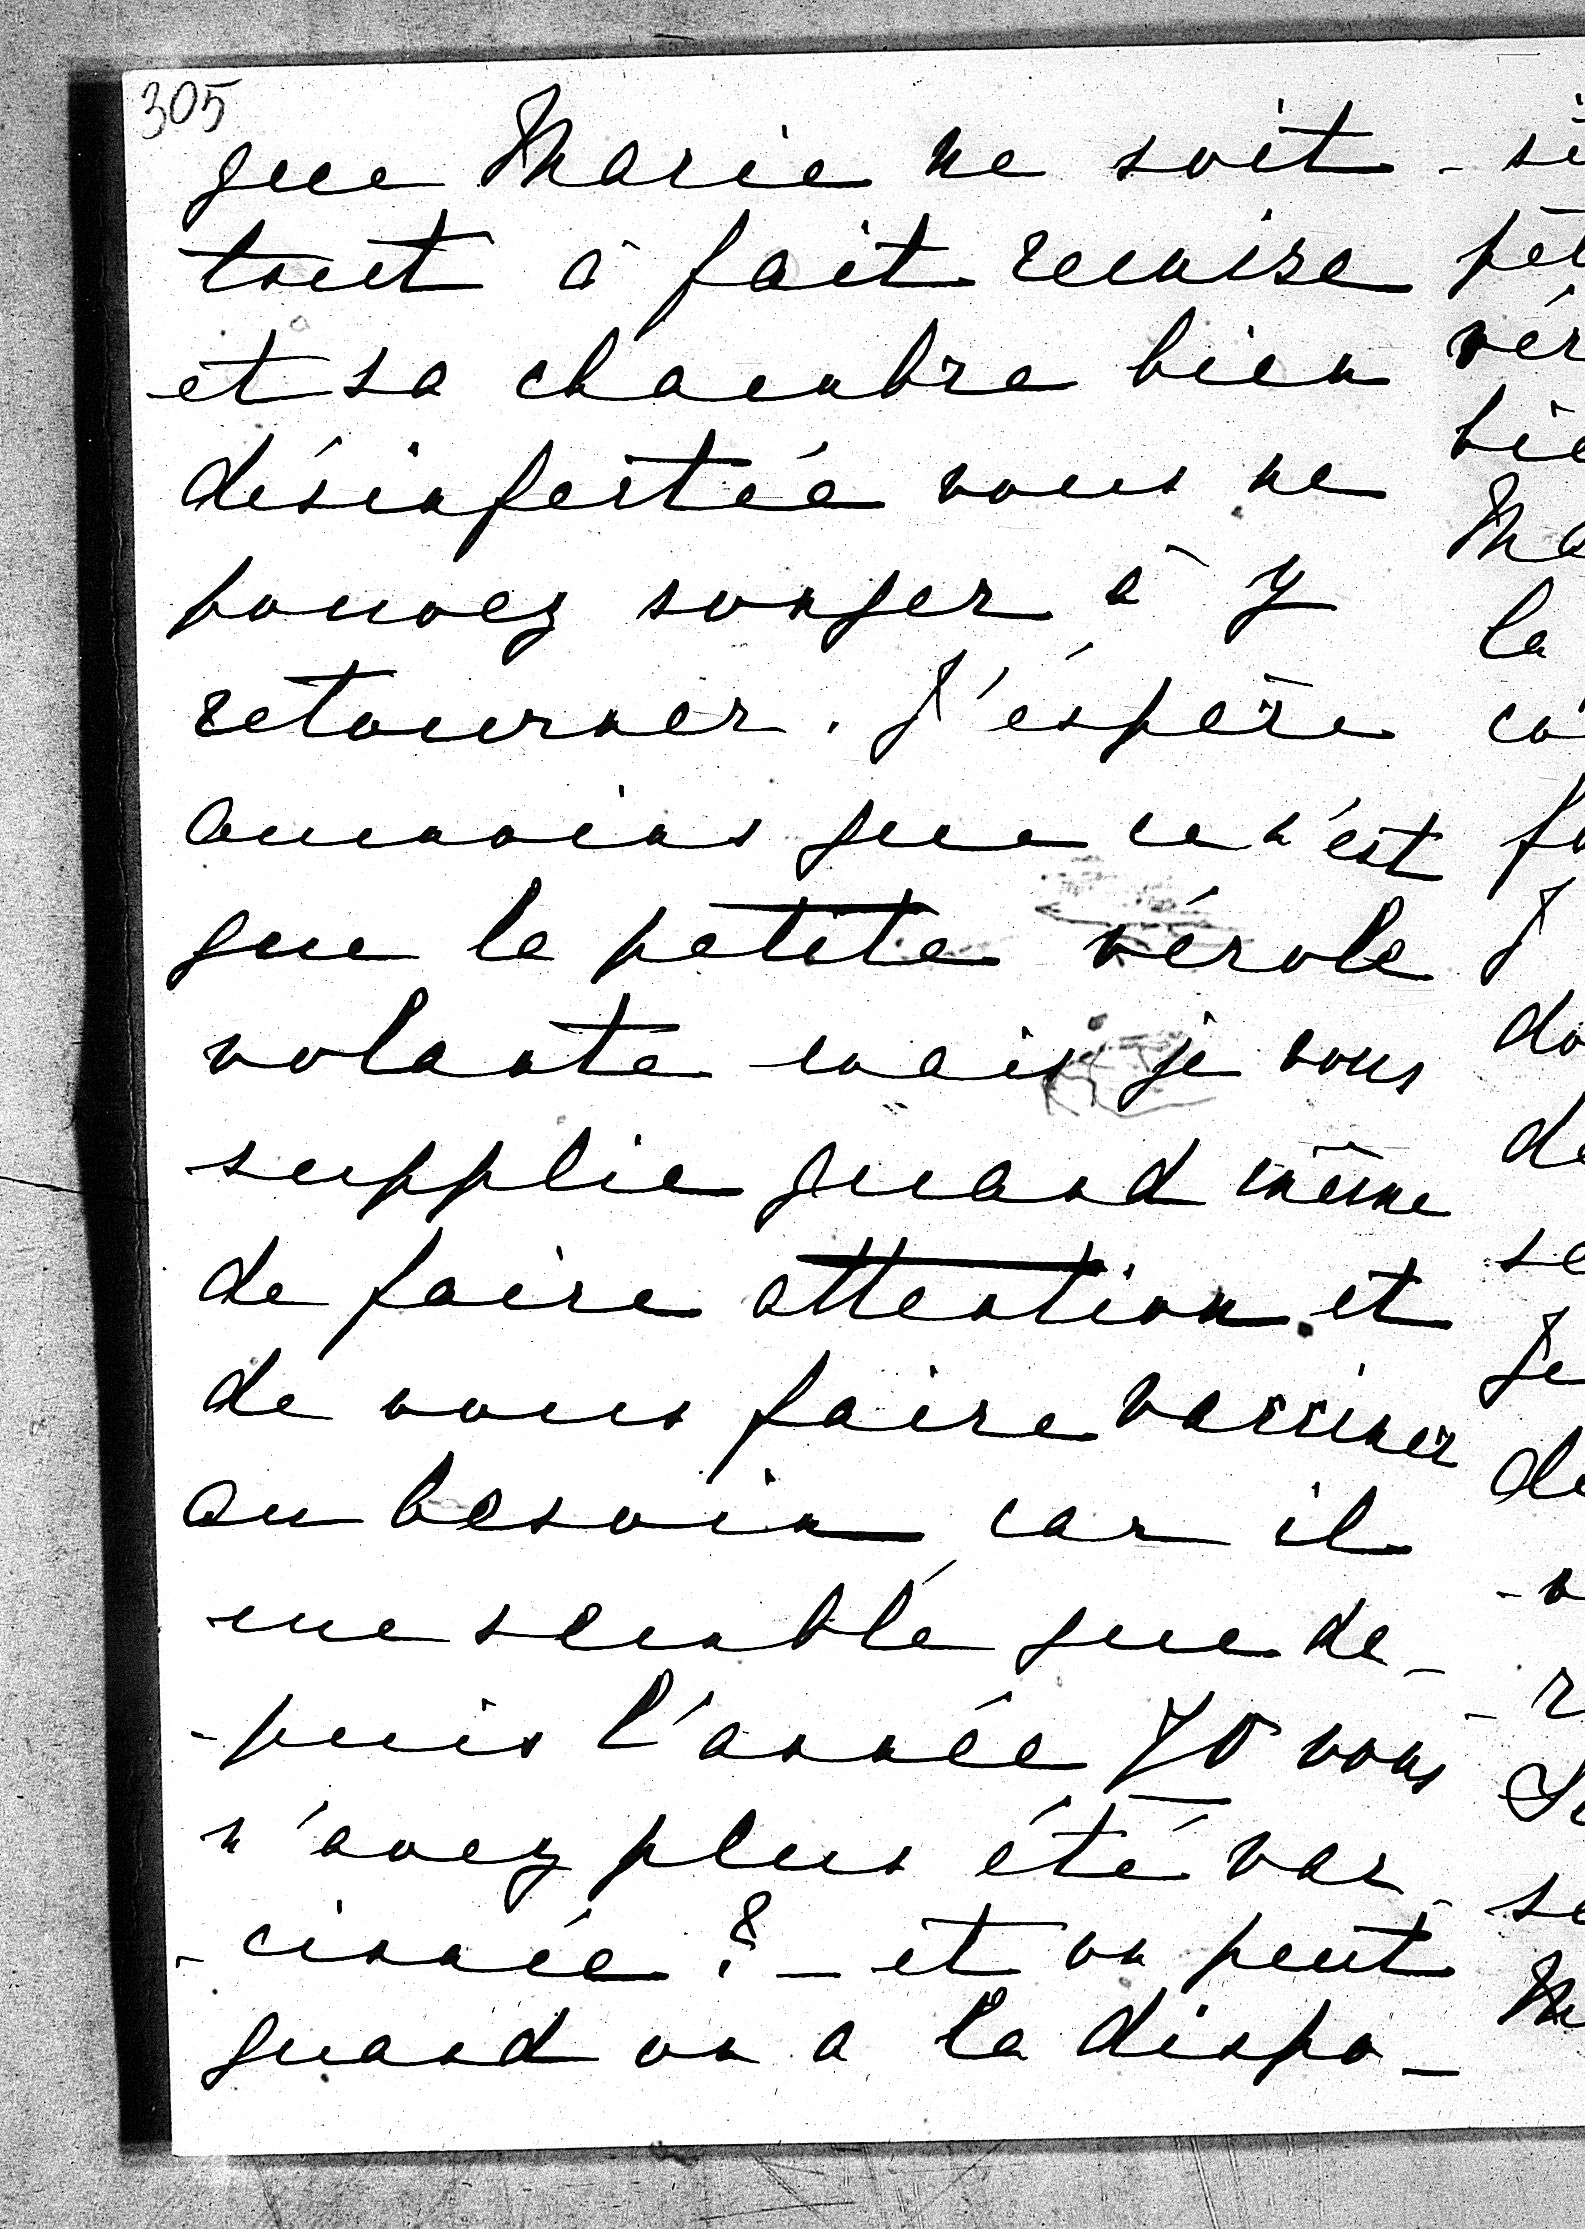 305
que Marie ne soit
tout à fait remise
et sa chambre bien
désinfectée vous ne
pouvez songer à y
retourner. J'éspère
aumoins que ce n'est
que la petite vérole
volante mais je vous
supplie quand même
de faire attention et
de vous faire vacciner
au besoin car il
me semble que de-
-puis l'année 70 vous
n'avez plus été vac-
-cinnée? - et on peut
quand on a la dispo-